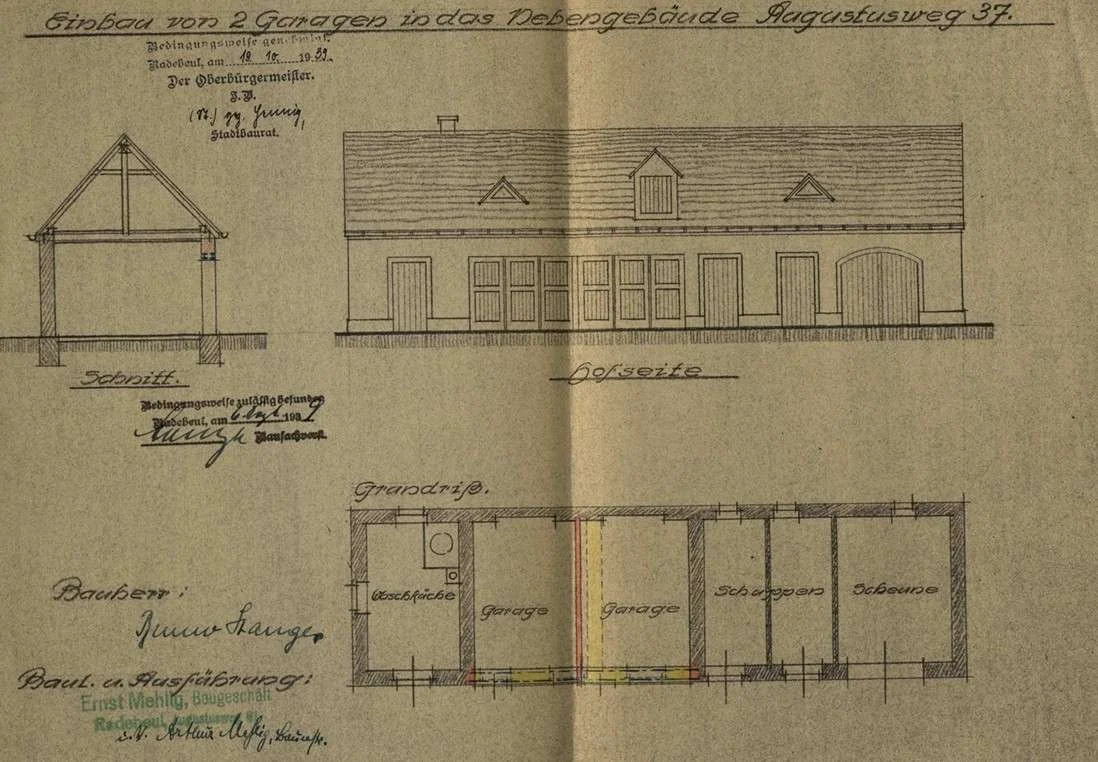 Einbau von 2 Garagen in das Nebengebäude Augustusweg 37.
Bedingungsweise genehmigt.
Radebeul, am 18. 10. 1939.
Der Oberbürgermeister.
J.V.
(St.) gez.
Stadtbaurat.
Schnitt.
Hofseite
Bedingungsweise zulässig befunden
Radebeul, am 6. 1939
Bausachverst.
Grundriß.
Waschküche
Garage
Garage
Schuppen
Scheune
Bauherr:
Bruno Stange.
Baul. u. Ausführung:
Ernst Mehlig, Baugeschäft
Radebeul, Augustusweg
i.V. Arthur Mehlig, Baumstr.